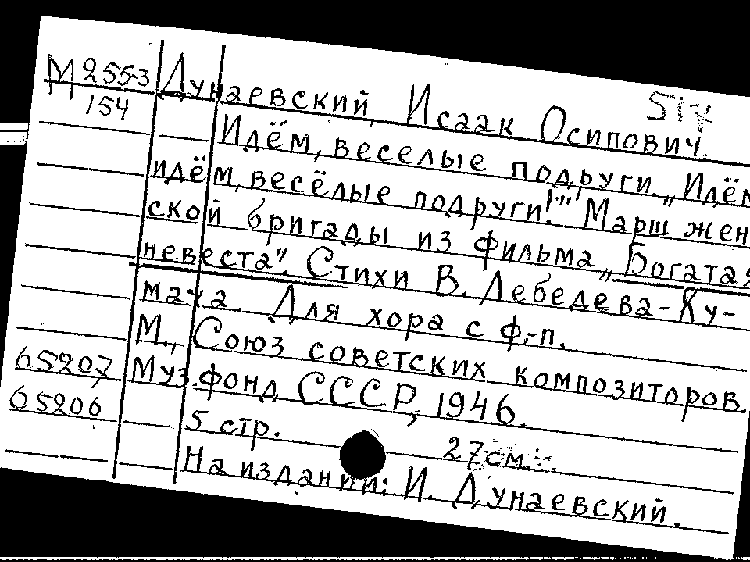 М2553 Дунаевский, Исаак Осипович.
154
Идём, веселые подруги. „Идём
идём, весёлые подруги!"" Марш жен-
ской бригады из фильма „Богатая
невеста". Стихи В. Лебедева-Ку-
мача. Для хора с ф.-п.
М., Союз советских композиторов.
65207 Муз.фонд СССР, 1946.
65206
5 стр. 27см.
На издании: И. Дунаевский.